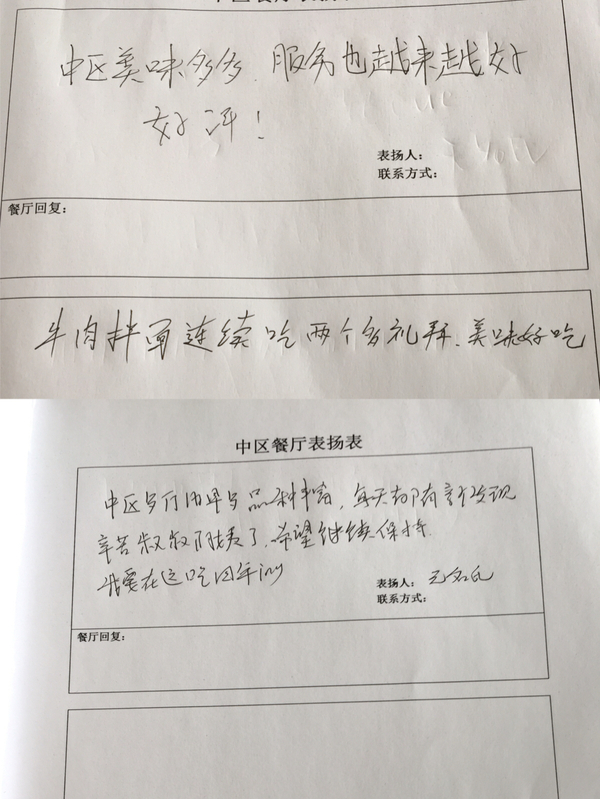 中区餐厅表扬表
中区美味多多、服务也越来越好
好评！
表扬人：
联系方式：
餐厅回复：
牛肉拌面连续吃两个多礼拜、美味好吃
中区餐厅表扬表
中区餐厅的早餐品种丰富，每天都有新发现
辛苦叔叔阿姨了，希望继续保持
我要在这吃四年
表扬人：无名氏
联系方式：
餐厅回复：